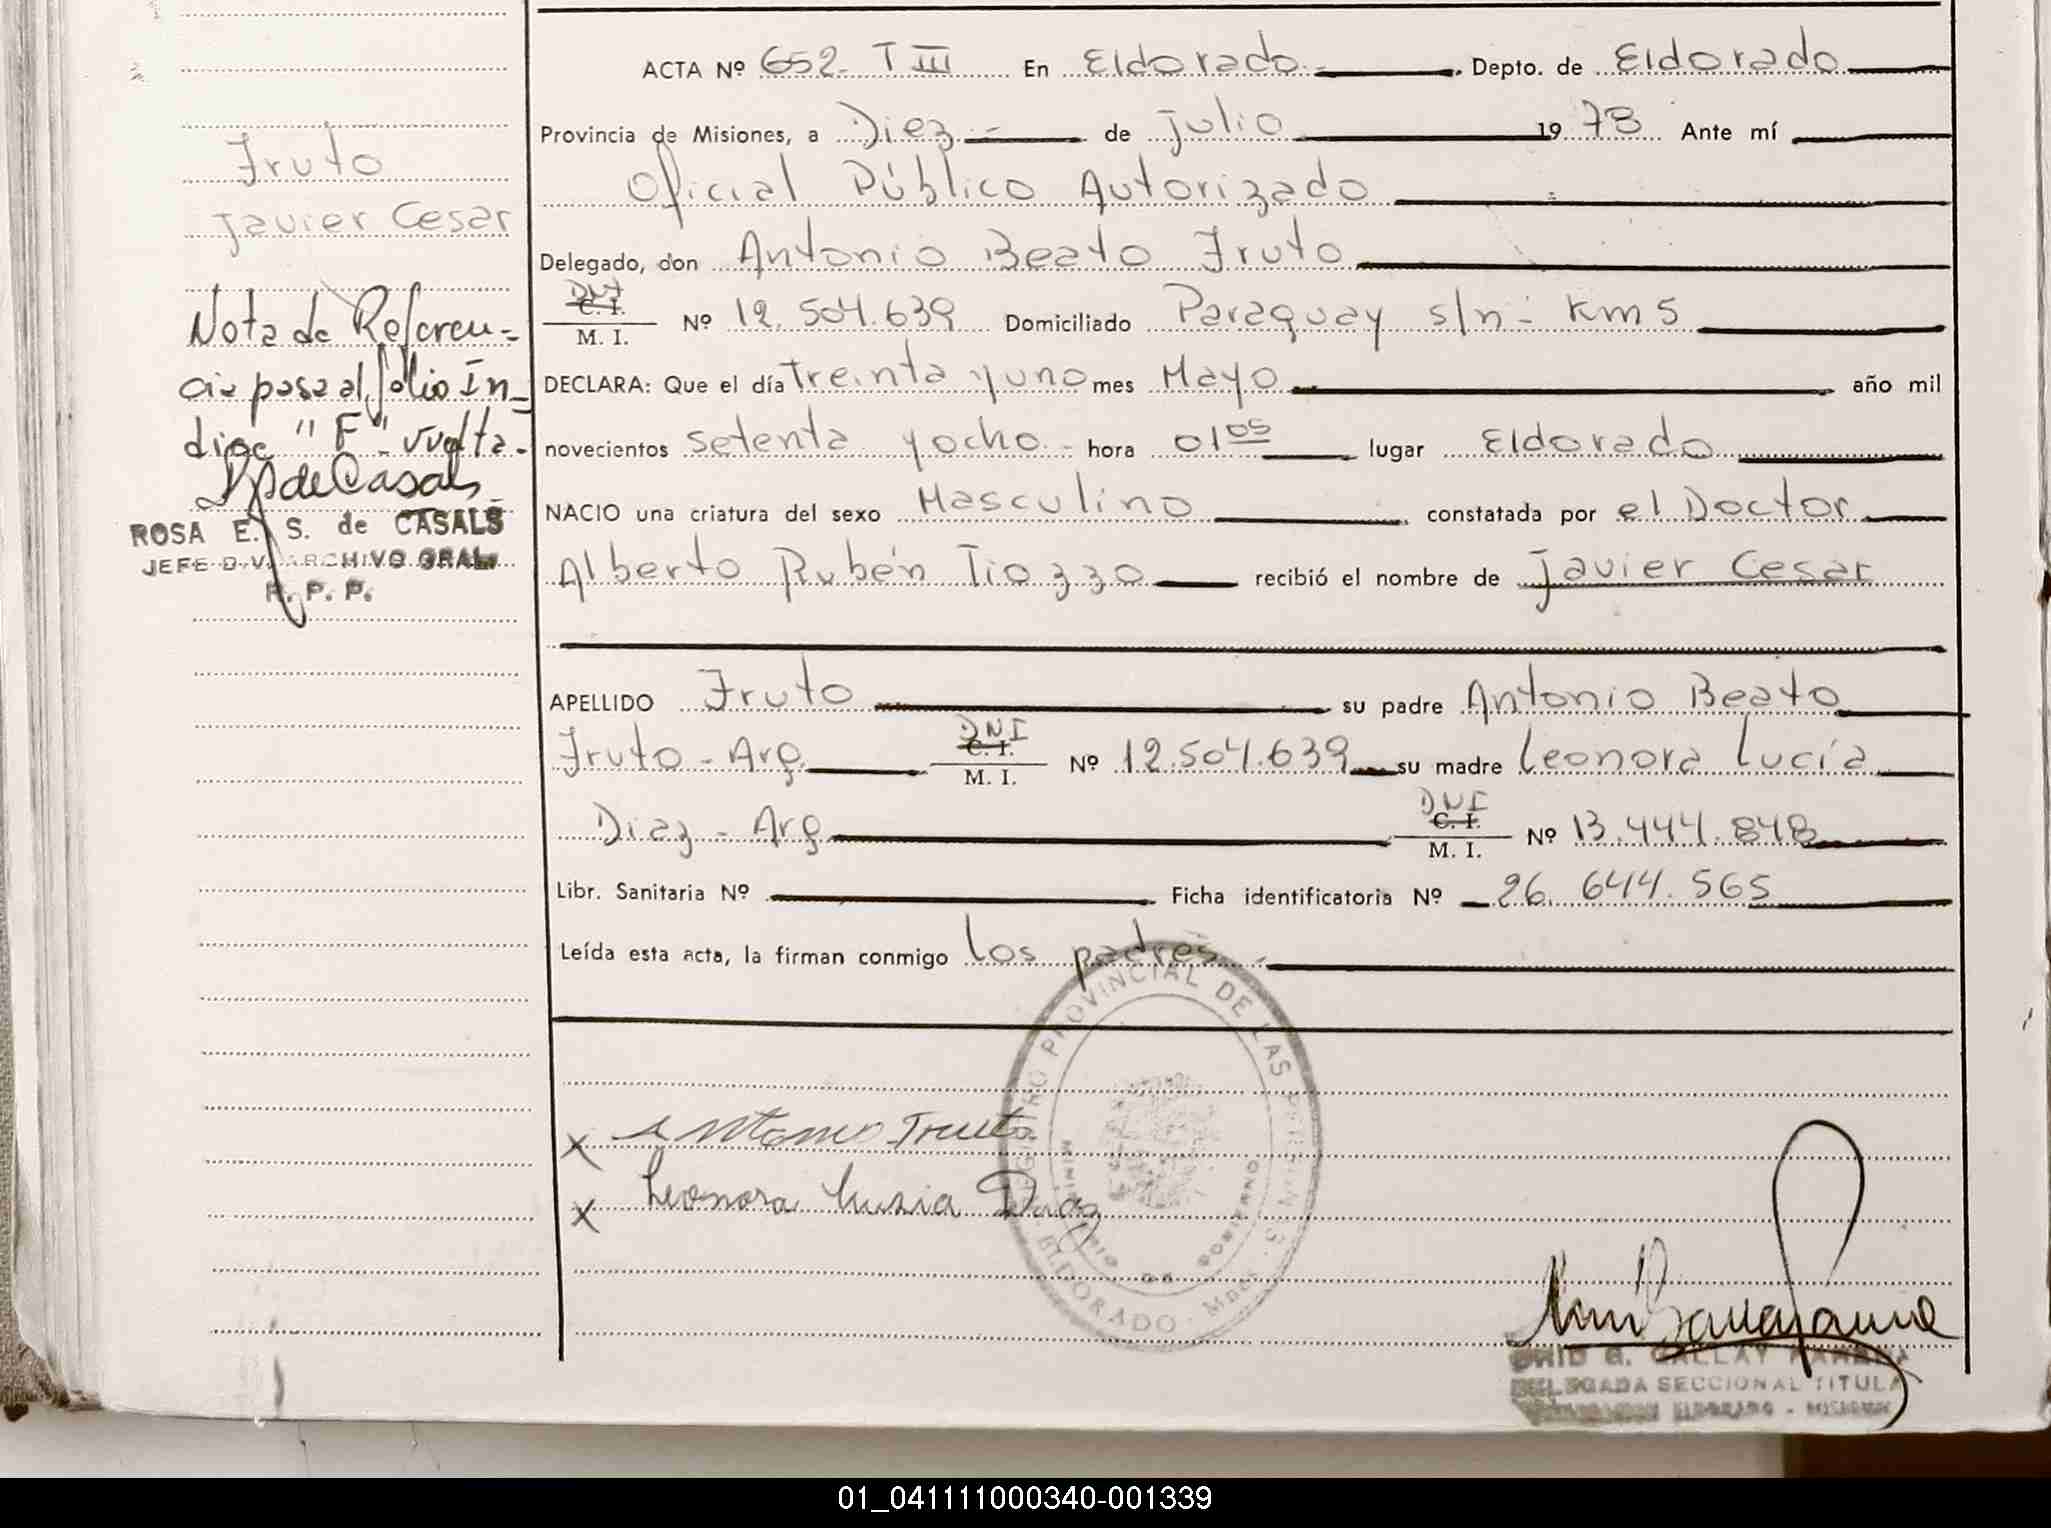 ACTA Nº 652- T III En Eldorado. Depto. de Eldorado
Provincia de Misiones, a Diez - de Julio 1978 Ante mí
Oficial Público Autorizado
Delegado, don Antonio Beato Fruto
DNI
C. I.
M. I.
Nº 12.504.639 Domiciliado Paraguay s/n - Km 5
DECLARA: Que el día Treinta y uno mes Mayo año mil
novecientos setenta y ocho.- hora 01 05 lugar Eldorado
NACIO una criatura del sexo Masculino constatada por el Doctor
Alberto Rubén Tiozzo recibió el nombre de Javier Cesar
APELLIDO Fruto su padre Antonio Beato
Fruto - Arg. DNI C. I. M. I. Nº 12.504.639 su madre Leonora Lucía
Diaz - Arg DNI C. I. M. I. Nº 13.444.848
Libr. Sanitaria Nº Ficha identificatoria Nº 26.644.565
Leída esta acta, la firman conmigo los padres.-
Fruto
Javier Cesar
Nota de Referen-
cia pasa al folio In-
dice "F" vuelta.-
RS de Casals
ROSA E. S. de CASALS
JEFE DIV. ARCHIVO GRAL.
R. P. P.
x Antonio Fruto
x Leonora Lusia Diaz
REGISTRO PROVINCIAL DE LAS PERSONAS
MINISTERIO DE GOBIERNO
ELDORADO - Mnes.
G. GALLAY
DELEGADA SECCIONAL TITULAR
ELDORADO - MISIONES
01_041111000340-001339